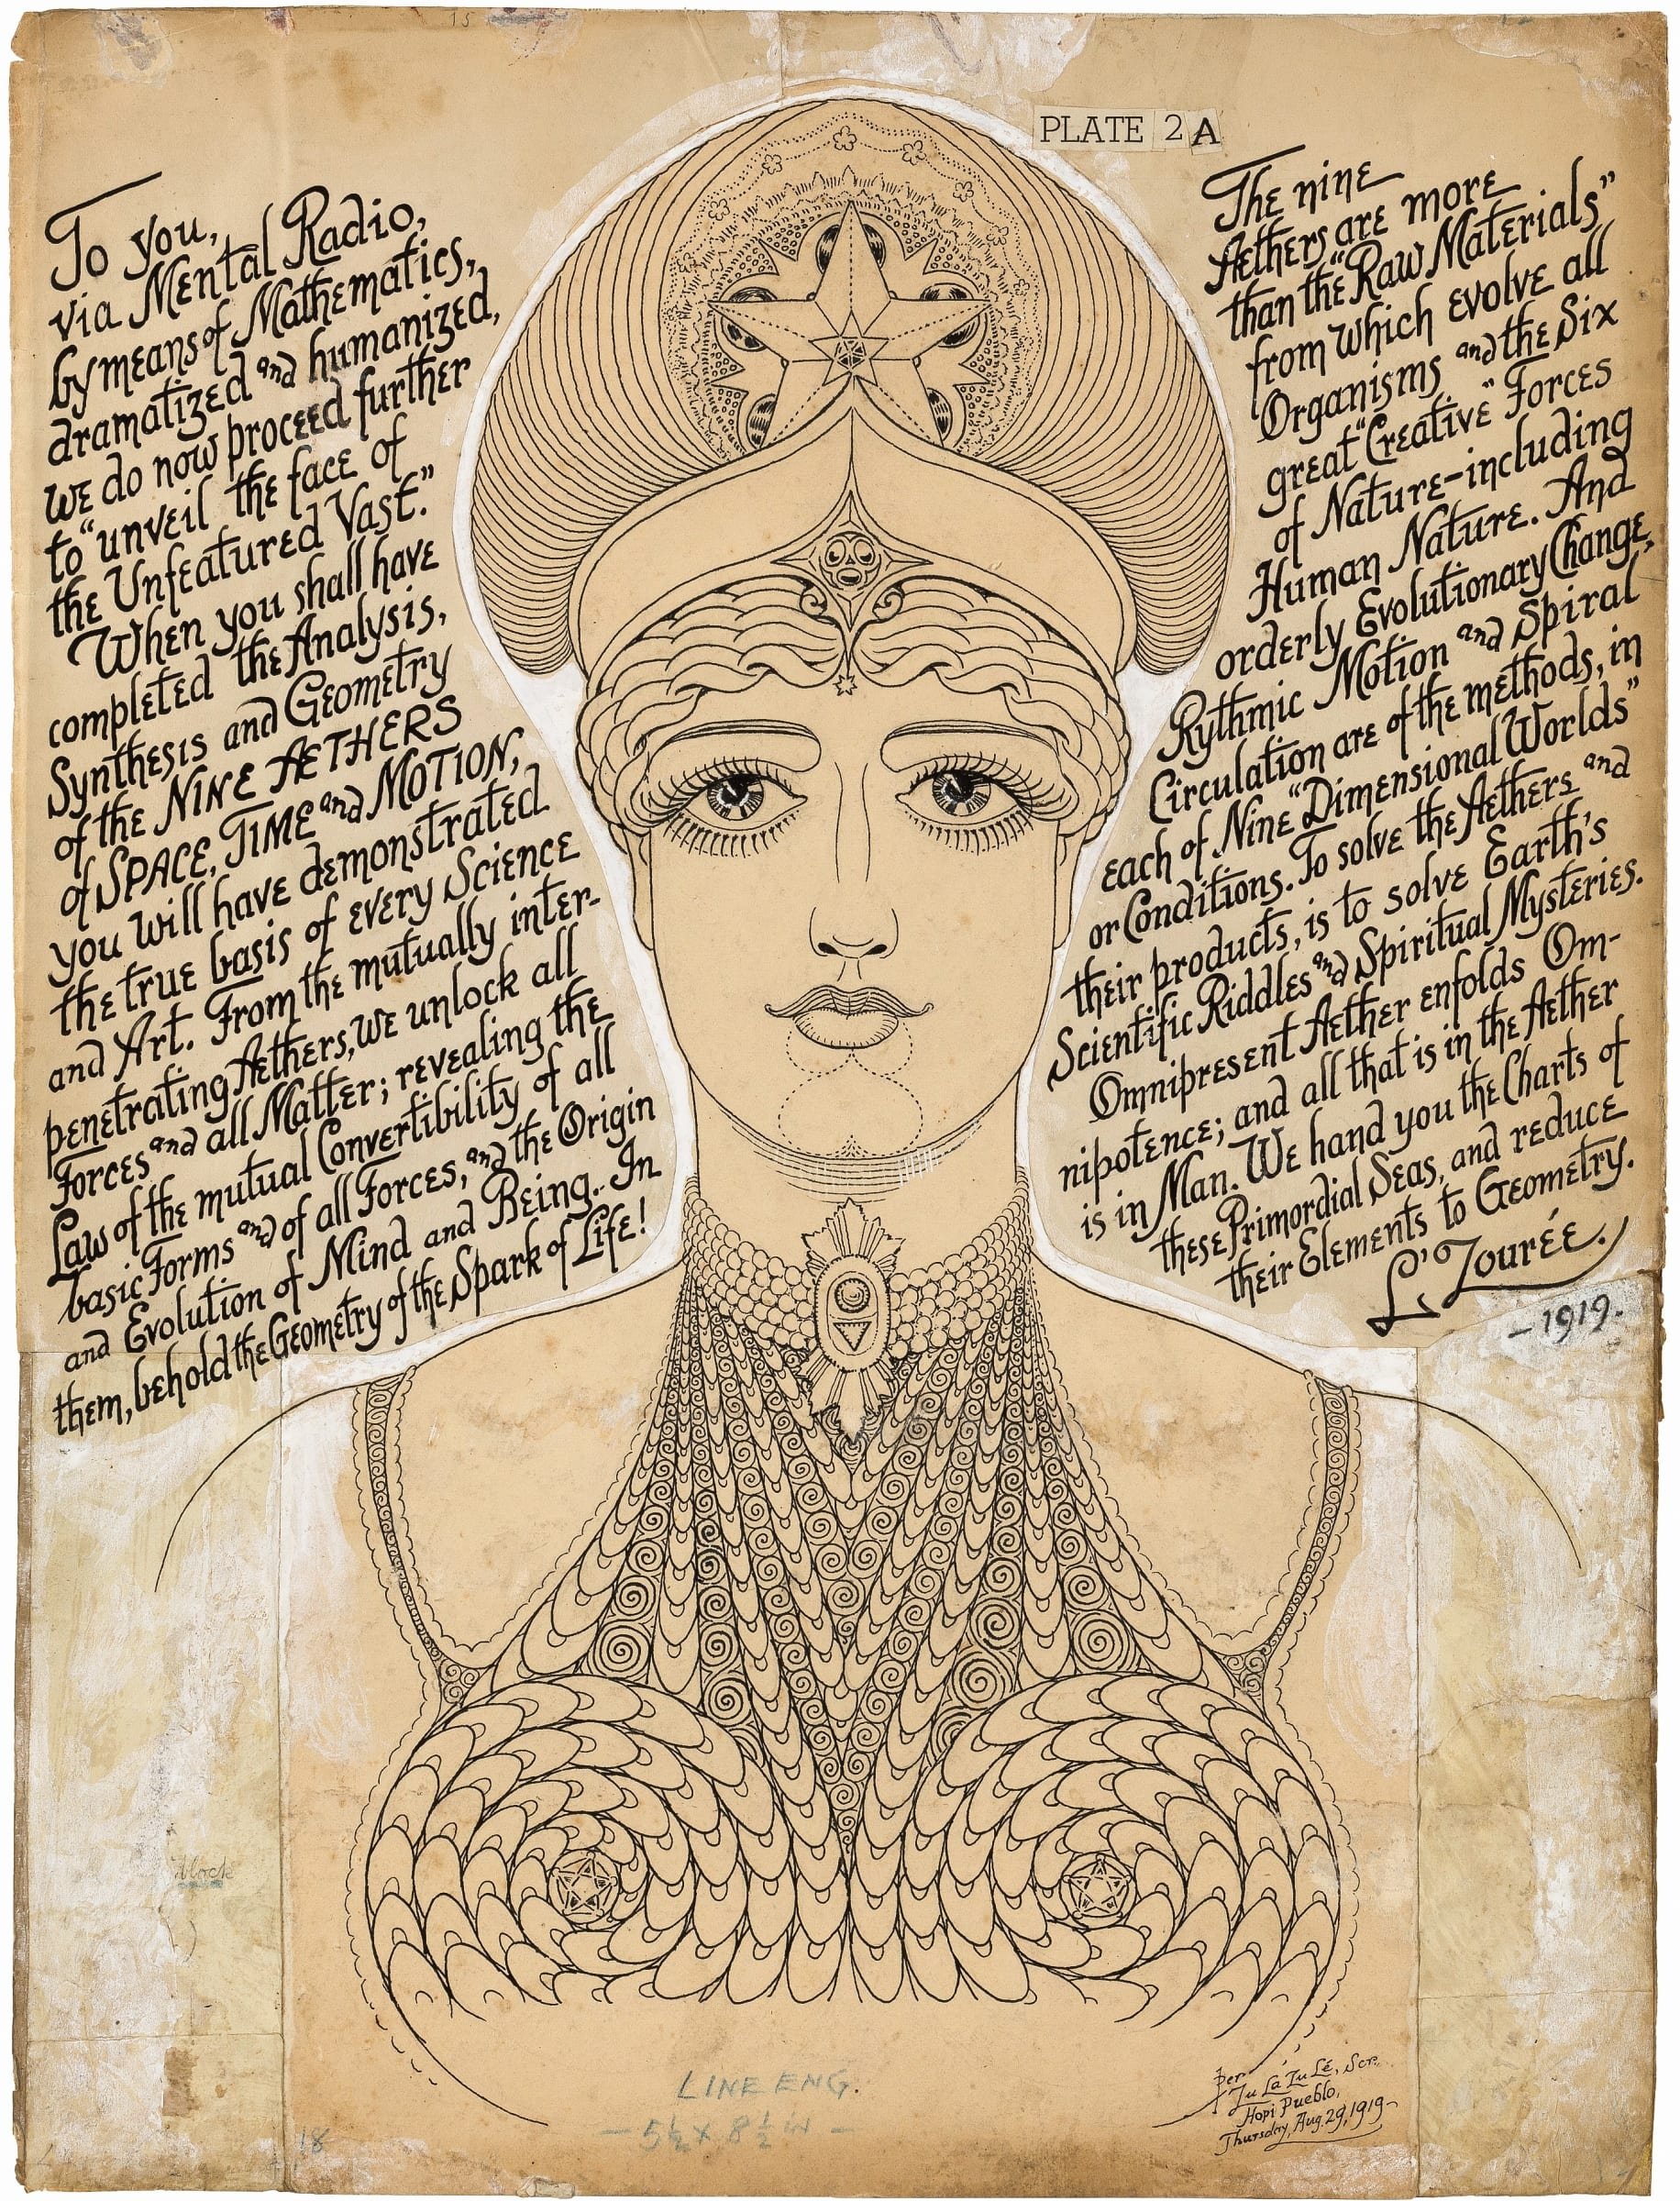 PLATE 2 A
To you,
via Mental Radio,
by means of Mathematics,
dramatized and humanized,
we do now proceed further
to "unveil the face of
the Unfeatured Vast."
When you shall have
completed the Analysis,
Synthesis and Geometry
of the NINE AETHERS
of SPACE, TIME and MOTION,
you will have demonstrated
the true basis of every Science
and Art. From the mutually inter-
penetrating Aethers, we unlock all
Forces and all Matter; revealing the
Law of the mutual Convertibility of all
basic Forms and of all Forces, and the Origin
and Evolution of Mind and Being. In
them, behold the Geometry of the Spark of Life!
The nine
Aethers are more
than the "Raw Materials"
from which evolve all
Organisms and the Six
great "Creative" Forces
of Nature—including
Human Nature. And
orderly Evolutionary Change,
Rythmic Motion and Spiral
Circulation are of the methods, in
each of Nine "Dimensional Worlds"
or Conditions. To solve the Aethers and
their products, is to solve Earth's
Scientific Riddles and Spiritual Mysteries.
Omnipresent Aether enfolds Om-
nipotence; and all that is in the Aether
is in Man. We hand you the Charts of
these Primordial Seas, and reduce
their Elements to Geometry.
L'Zourée.
– 1919.
block
LINE ENG.
— 5½ x 8½ W —
18
per
Zu La Zu Lé, Scr.
Hopi Pueblo,
Thursday, Aug. 29, 1919–